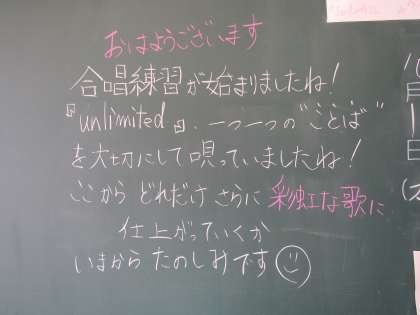 おはようございます
合唱練習が始まりましたね！
『unlimited』、一つ一つの"ことば"
を大切にして唄っていましたね！
ここから どれだけ さらに 彩虹な歌に
仕上がっていくか
いまから たのしみです
月
日